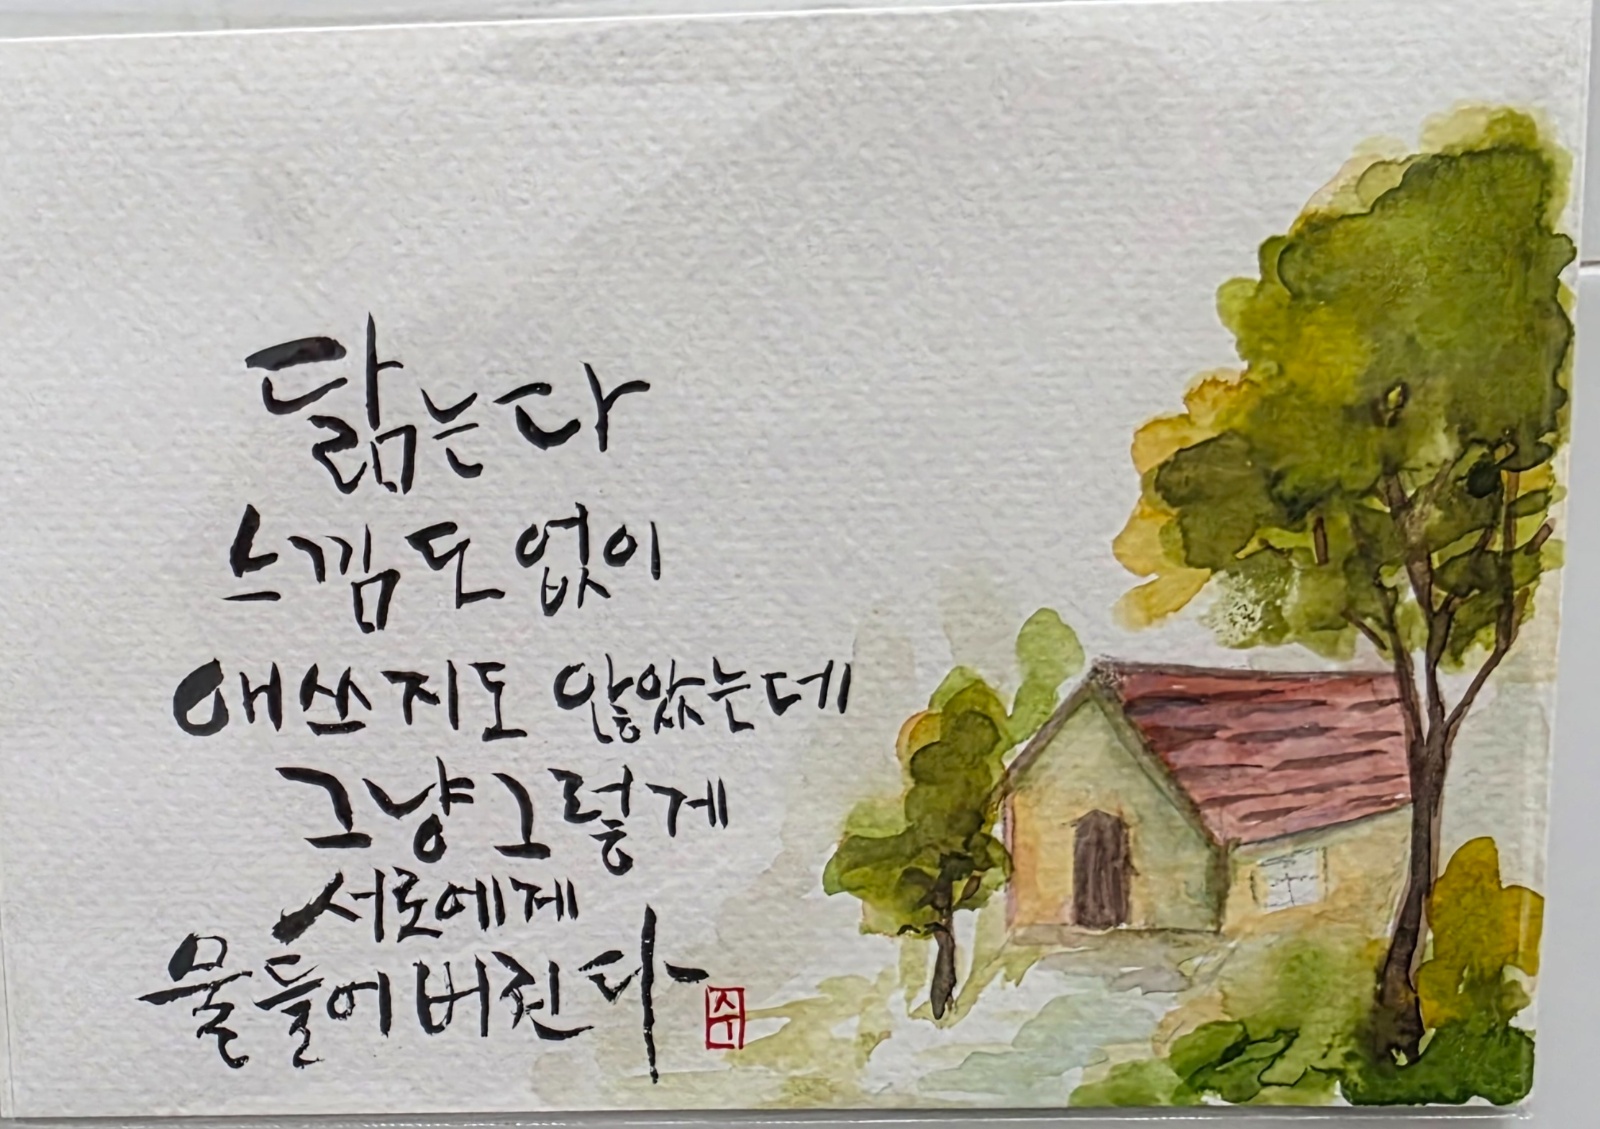 닮는다
느낌도 없이
애쓰지도 않았는데
그냥 그렇게
서로에게
물들어 버린다